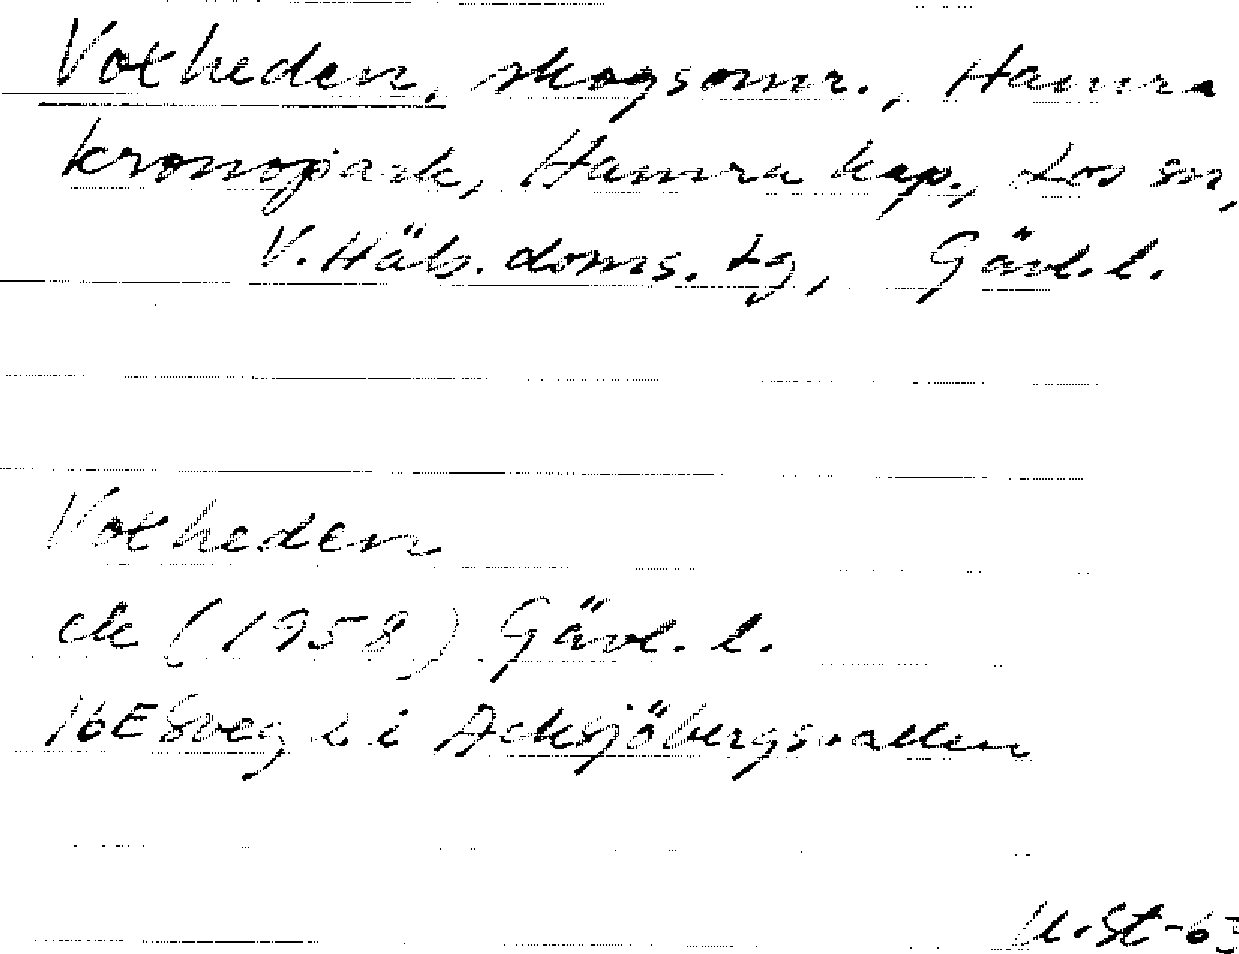 Voxheden, skogsomr., Hamra
kronopark, Hamra kap., Los sn,
V. Häls. doms. tg, Gävl. l.
Voxheden
ek (1958) Gävl. l.
16E Sveg i Acksjöbergsvallen
U. St-63